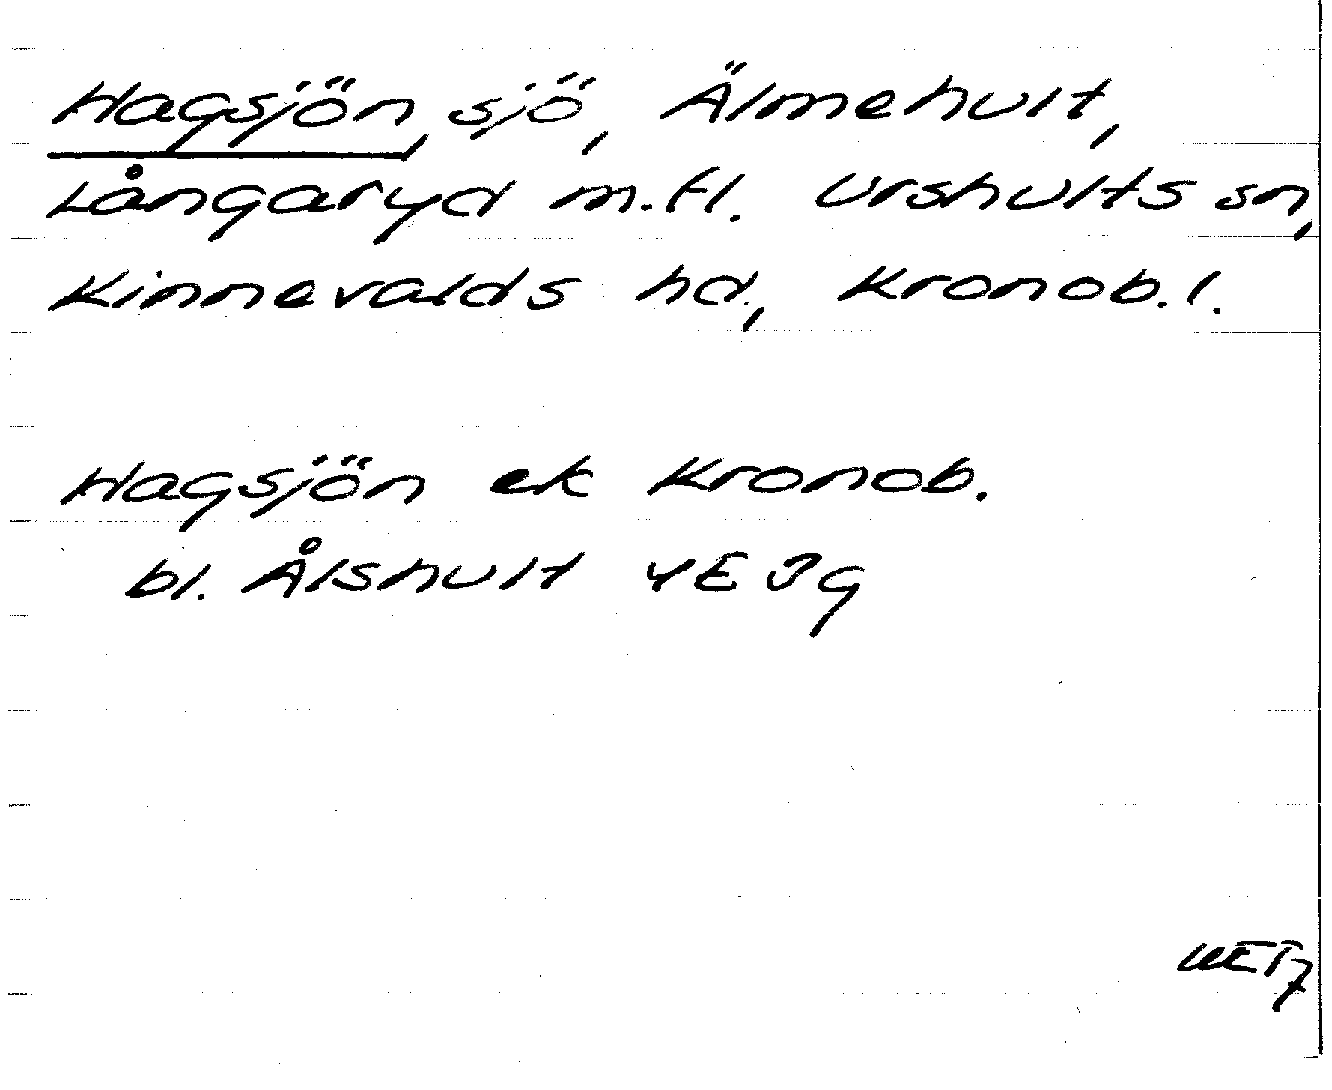 Hagsjön, sjö, Älmehult,
Långaryd m.fl. Urshults sn,
Kinnevalds hd, Kronob.l.
Hagsjön ek Kronob.
bl. Ålshult 4E3g